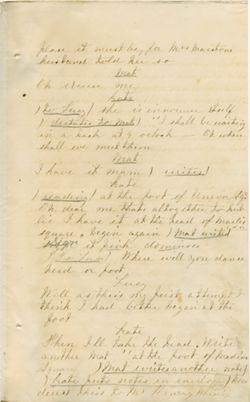 place it must be, for Mrs Marston's
husband told her so
Mat
Oh excuse me
Kate
(to Lucy) she is innocence itself
(dictates to Mat) "I shall be waiting
in a hack at 9 oclock — Oh where
shall we meet them
Mat
I have it mam (writes)
Kate
(reading) at the foot of Union Sq
Oh dear me thats altogether to pub-
lic I have it at the head of Madison
square. begin again (Mat writes)
it pink dominoes
(to Lucy) Where will you dance
head or foot
Lucy
Well as this my first attempt I
think I had better begin at the
foot
Kate
Then I'll take the head, Write
another Mat "at the foot of Madison
Square (Mat writes another note)
(Kate puts notes in envelopes)
deres thess to Mr Henry